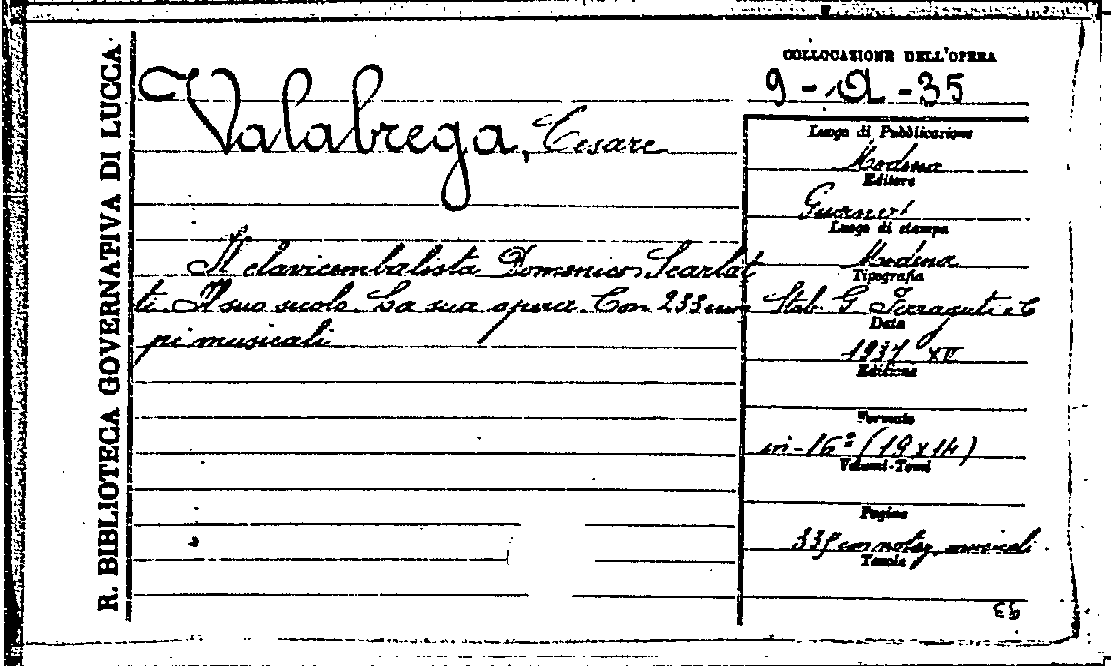 R. BIBLIOTECA GOVERNATIVA DI LUCCA
COLLOCAZIONE DELL'OPERA
9 - - 35
Valabrega, Cesare
Il clavicembalista Domenico Scarlat
ti. Il suo secolo. La sua opera. Con 233 esem
pi musicali
Luogo di Pubblicazione
Modena
Editore
Luogo di stampa
Modena
Tipografia
Stab. G. Ferraguti e C
Data
1937 XV
Edizione
Formato
in-16° (19 x 14)
Volumi-Tomi
Pagine
339 con notaz. musicali
Tavole